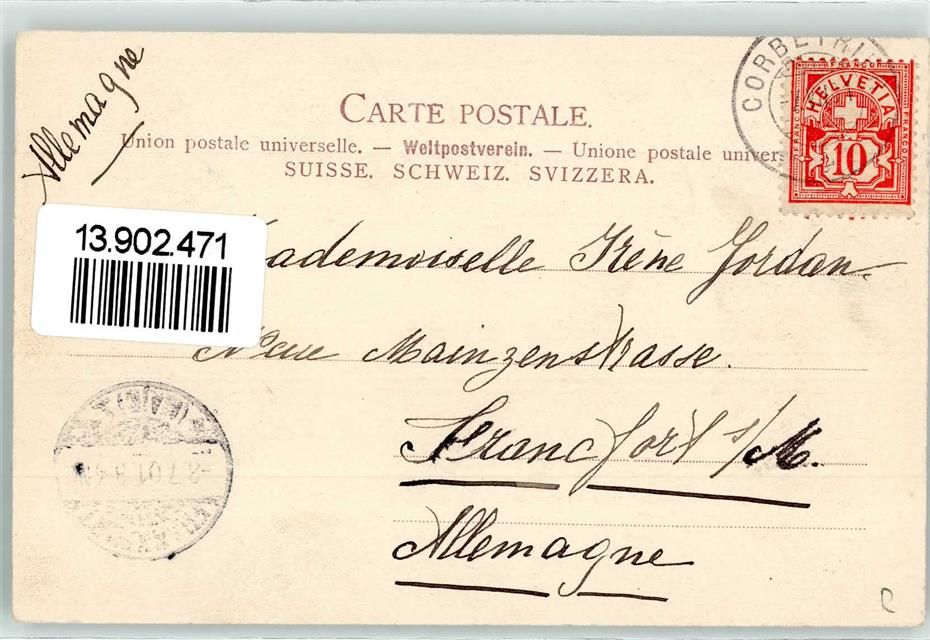 Allemagne
CARTE POSTALE.
Union postale universelle. — Weltpostverein. — Unione postale univers
SUISSE. SCHWEIZ. SVIZZERA.
FRANCO
HELVETIA
FRANCO
FRANCO
10
13.902.471
Mademoiselle Irène Jordan.
Neue Mainzenstrasse.
Francfort s/M.
Allemagne